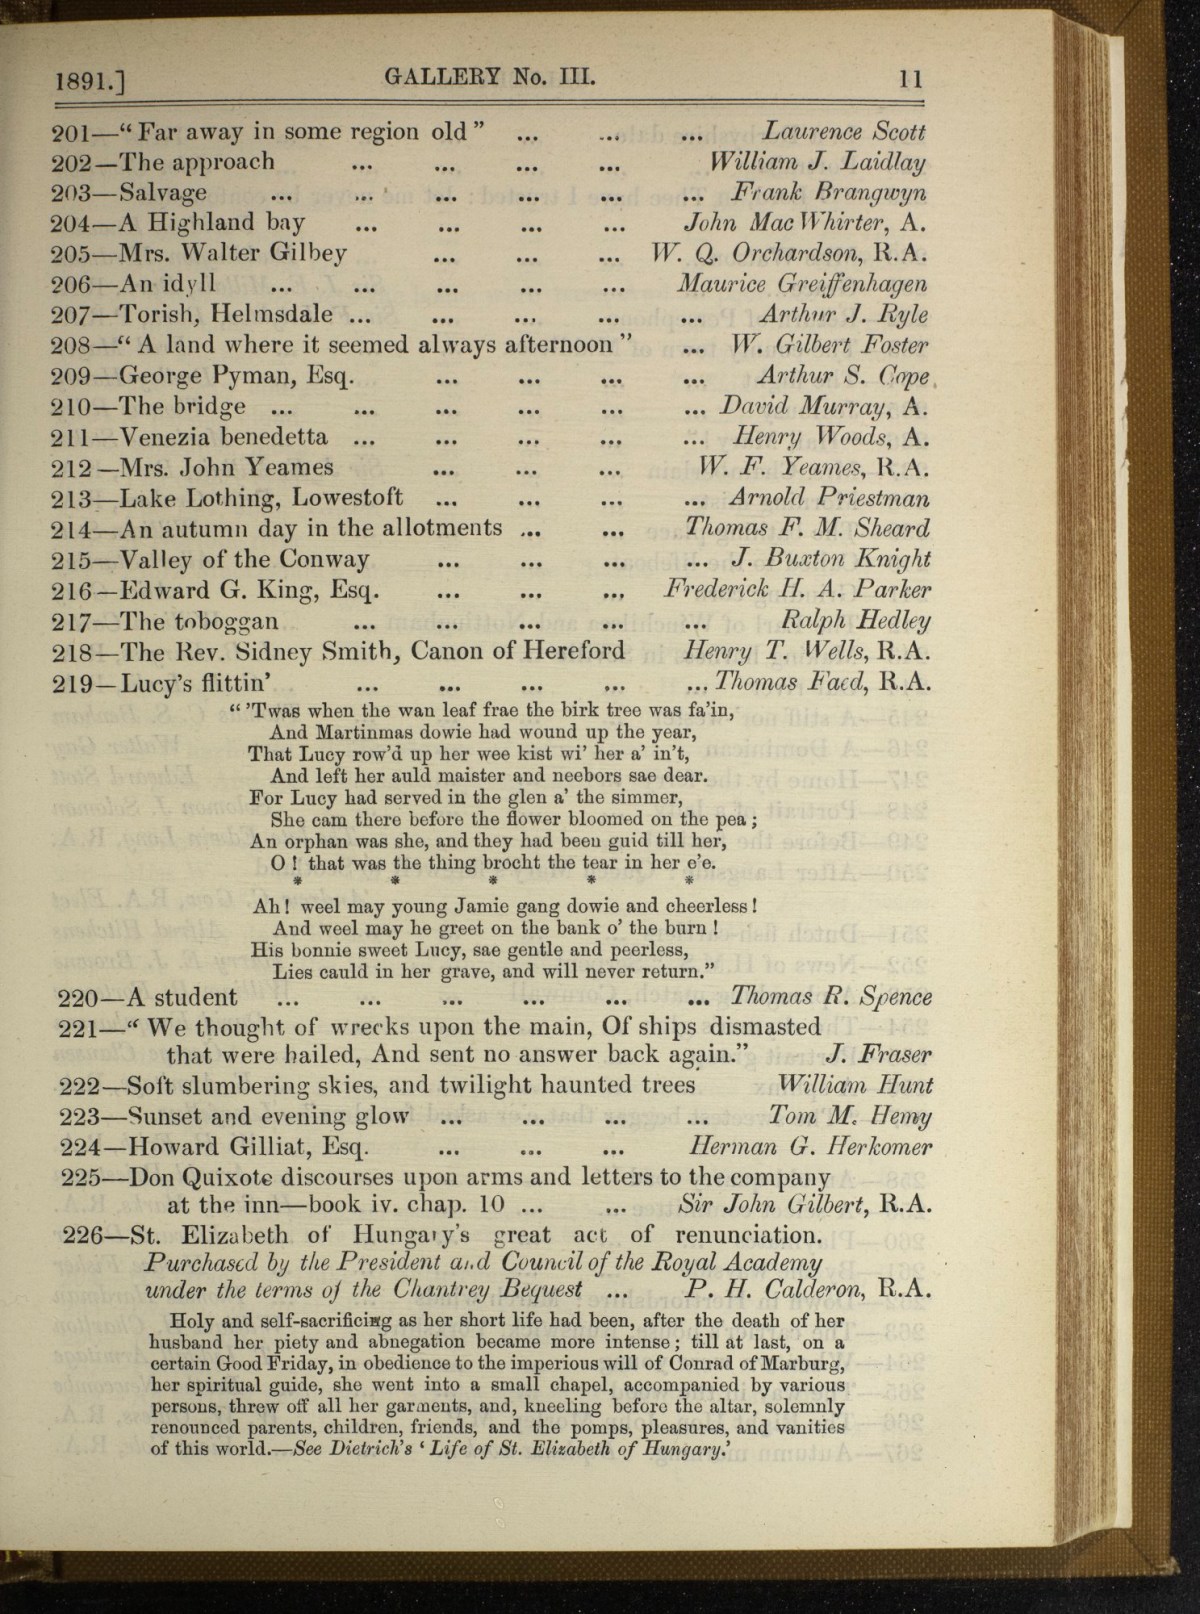 1891.] GALLERY No. III. 11
201—“ Far away in some region old ” ... ... ... Laurence Scott
202—The approach ... ... ... ... William J. Laidlay
203—Salvage ... ... ... ... ... ... Frank Brangwyn
204—A Highland bay ... ... ... ... John MacWhirter, A.
205—Mrs. Walter Gilbey ... ... ... W. Q. Orchardson, R.A.
206—An idyll ... ... ... ... ... Maurice Greiffenhagen
207—Torish, Helmsdale ... ... ... ... ... Arthur J. Ryle
208—“ A land where it seemed always afternoon ” ... W. Gilbert Foster
209—George Pyman, Esq. ... ... ... ... Arthur S. Cope
210—The bridge ... ... ... ... ... ... David Murray, A.
211—Venezia benedetta ... ... ... ... ... Henry Woods, A.
212—Mrs. John Yeames ... ... ... W. F. Yeames, R.A.
213—Lake Lothing, Lowestoft ... ... ... ... Arnold Priestman
214—An autumn day in the allotments ... ... Thomas F. M. Sheard
215—Valley of the Conway ... ... ... ... J. Buxton Knight
216—Edward G. King, Esq. ... ... ... Frederick H. A. Parker
217—The toboggan ... ... ... ... ... Ralph Hedley
218—The Rev. Sidney Smith, Canon of Hereford Henry T. Wells, R.A.
219—Lucy’s flittin’ ... ... ... ... ... Thomas Faed, R.A.
“ ’Twas when the wan leaf frae the birk tree was fa’in,
And Martinmas dowie had wound up the year,
That Lucy row’d up her wee kist wi’ her a’ in’t,
And left her auld maister and neebors sae dear.
For Lucy had served in the glen a’ the simmer,
She cam there before the flower bloomed on the pea ;
An orphan was she, and they had been guid till her,
O ! that was the thing brocht the tear in her e’e.
* * * * *
Ah ! weel may young Jamie gang dowie and cheerless !
And weel may he greet on the bank o’ the burn !
His bonnie sweet Lucy, sae gentle and peerless,
Lies cauld in her grave, and will never return.”
220—A student ... ... ... ... ... ... Thomas R. Spence
221—“ We thought of wrecks upon the main, Of ships dismasted
that were hailed, And sent no answer back again.” J. Fraser
222—Soft slumbering skies, and twilight haunted trees William Hunt
223—Sunset and evening glow ... ... ... ... Tom M. Hemy
224—Howard Gilliat, Esq. ... ... ... Herman G. Herkomer
225—Don Quixote discourses upon arms and letters to the company
at the inn—book iv. chap. 10 ... ... Sir John Gilbert, R.A.
226—St. Elizabeth of Hungary’s great act of renunciation.
Purchased by the President and Council of the Royal Academy
under the terms of the Chantrey Bequest ... P. H. Calderon, R.A.
Holy and self-sacrificing as her short life had been, after the death of her
husband her piety and abnegation became more intense ; till at last, on a
certain Good Friday, in obedience to the imperious will of Conrad of Marburg,
her spiritual guide, she went into a small chapel, accompanied by various
persons, threw off all her garments, and, kneeling before the altar, solemnly
renounced parents, children, friends, and the pomps, pleasures, and vanities
of this world.—See Dietrich’s ‘ Life of St. Elizabeth of Hungary.’